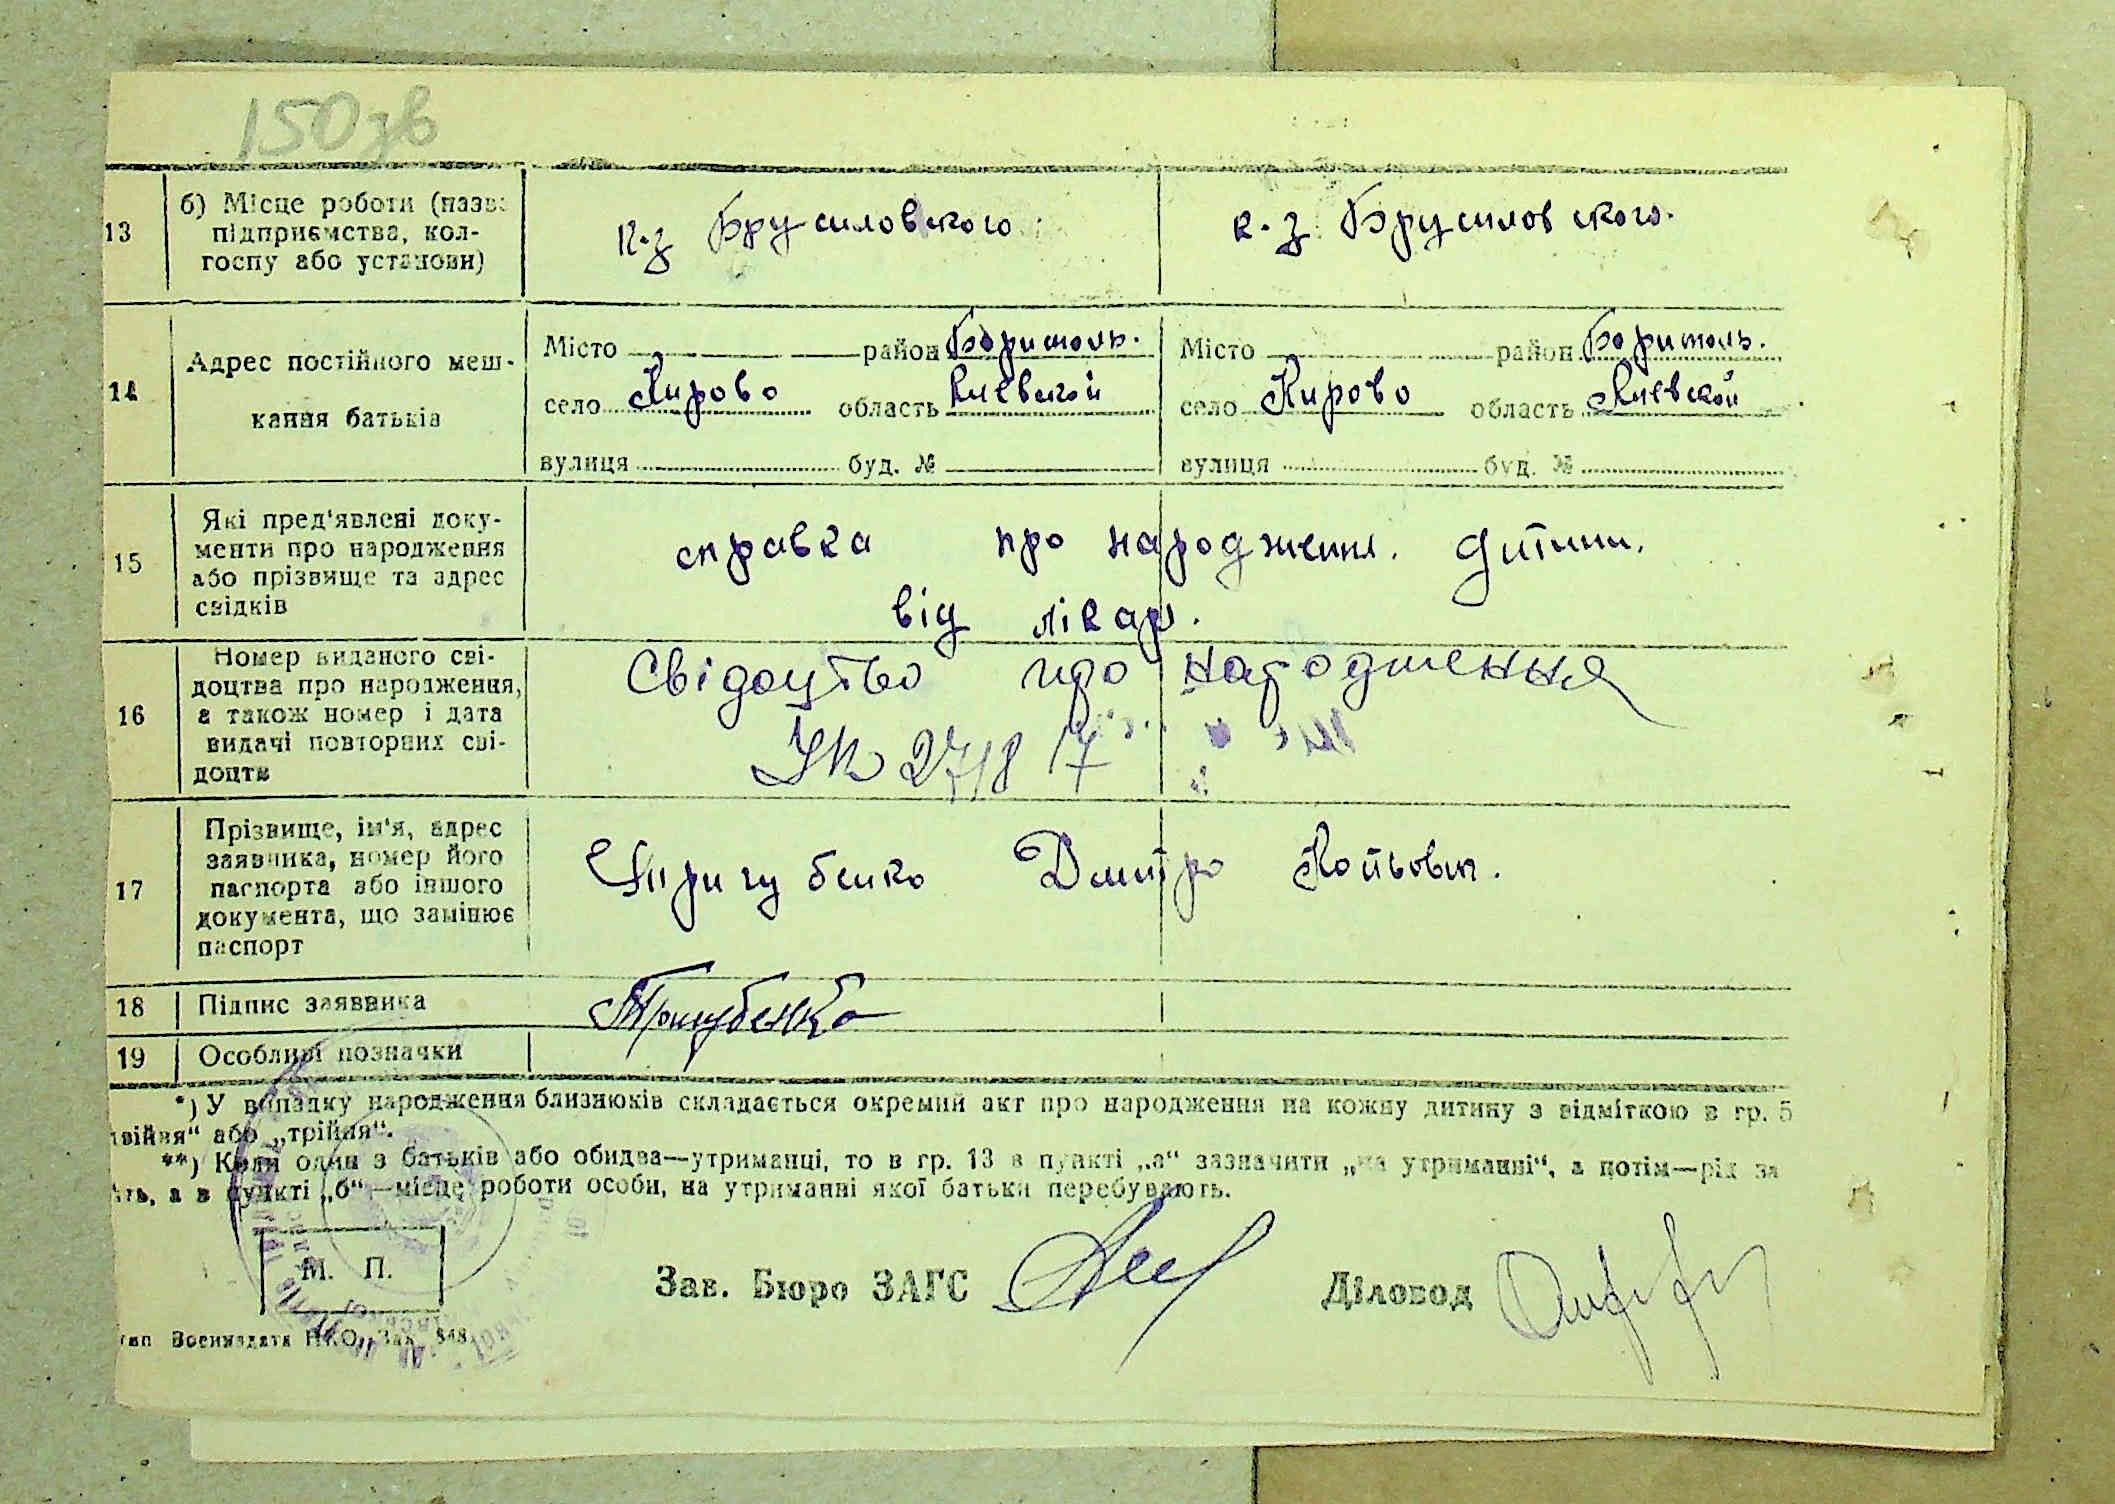 150зв
13 б) Місце роботи (назва підприємства, колгоспу або установи) к-з Брусиловского к-з Брусиловского.
14 Адрес постійного мешкання батьків
Місто район Бориполь. Місто район Бориполь.
село Кирово область Киевской село Кирово область Киевской
вулиця буд. № вулиця буд. №
15 Які пред'явлені документи про народження або прізвище та адрес свідків
справка про народження. дитини.
від лікар.
16 Номер виданого свідоцтва про народження, а також номер і дата видачі повторних свідоцтв
Свідоцтво про народження
УК 2718
17 Прізвище, ім'я, адрес заявника, номер його паспорта або іншого документа, що замінює паспорт
Дмитро
18 Підпис заявника Тригубенко
19 Особливі позначки
*) У випадку народження близнюків складається окремий акт про народження на кожну дитину з відміткою в гр. 5
двійня" або „трійня".
**) Коли один з батьків або обидва—утриманці, то в гр. 13 в пункті „а" зазначити „на утриманні", а потім—рід за
ть, а в пункті „б"—місце роботи особи, на утриманні якої батьки перебувають.
М. П.
Зав. Бюро ЗАГС Діловод
тип Воениздата НКО, Зак. 848